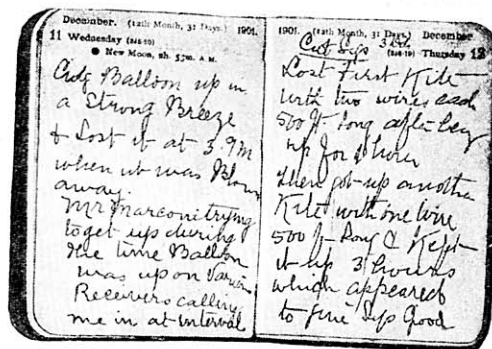 December. (12th Month, 31 Days) 1901.
11 Wednesday (345-20)
● New Moon, 2h. 53m. A.M.
Balloon up in
a Strong Breeze
& Lost it at 3.PM
when it was Blown
away.
Mr Marconi trying
to get up during
the time Balloon
was up on Various
Receivers calling
me in at interval
1901. (12th Month, 31 Days) December
Thursday 12
Sigs
Lost First Kite
with two wires each
500 ft long after being
up for hour
then got up another
Kite with one wire
500 ft long & Kept
it up 3 hours
which appeared
to give Sigs Good